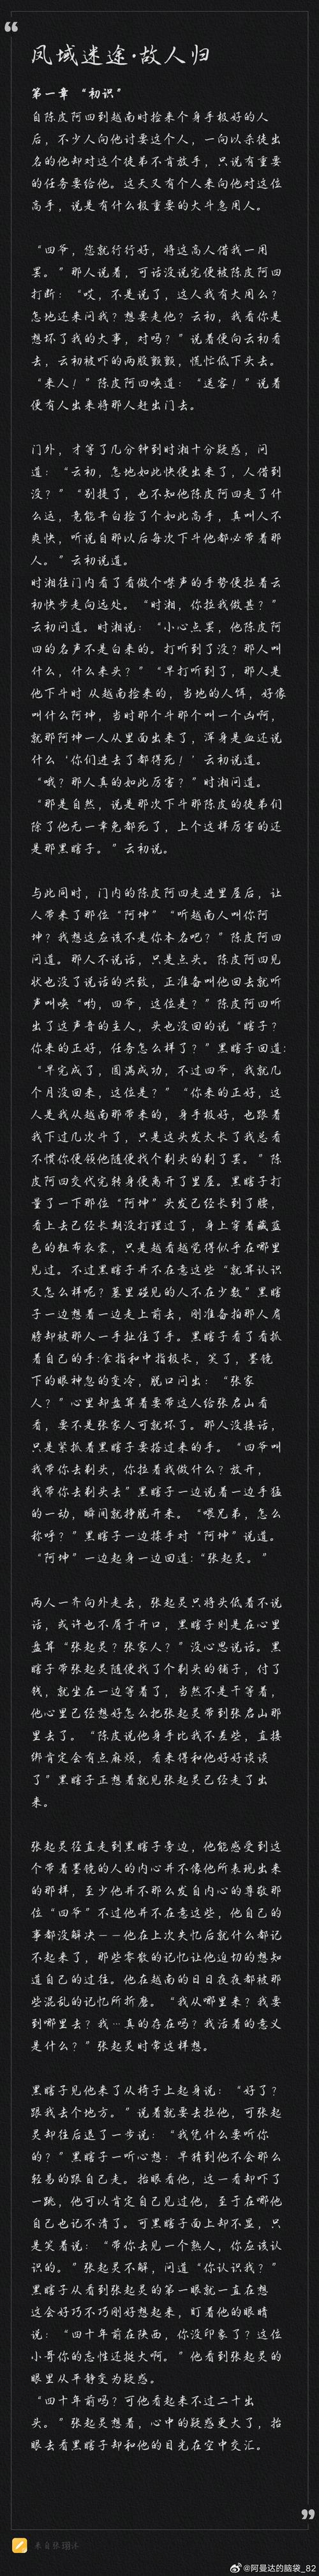 凤城迷途·故人归
第一章 “初识”
自陈皮阿四到越南时捡来个身手极好的人
后，不少人向他讨要这个人，一向以杀徒出
名的他却对这个徒弟不肯放手，只说有重要
的任务要给他。这天又有个人来向他对这位
高手，说是有什么极重要的大斗急用人。
“四爷，您就行行好，将这高人借我一用
罢。”那人说着，可话没说完便被陈皮阿四
打断：“哎，不是说了，这人我有大用么？
怎地还来问我？想要走他？云初，我看你是
想坏了我的大事，对吗？”说着便向云初看
去，云初被吓的两股颤颤，慌忙低下头去。
“来人！”陈皮阿四唤道：“送客！”说着
便有人出来将那人赶出门去。
门外，才等了几分钟到时湘十分疑惑，问
道：“云初，怎地如此快便出来了，人借到
没？”“别提了，也不知他陈皮阿四走了什
么运，竟能平白捡了个如此高手，真叫人不
爽快，听说自那以后每次下斗他都必带着那
人。”云初说道。
时湘往门内看了看做个噤声的手势便拉着云
初快步走向远处。“时湘，你拉我做甚？”
云初问道。时湘说：“小心点罢，他陈皮阿
四的名声不是白来的。打听到了没？那人叫
什么，什么来头？”“早打听到了，那人是
他下斗时 从越南捡来的，当地的人饵，好像
叫什么阿坤，当时那个斗那个叫一个凶啊，
就那阿坤一人从里面出来了，浑身是血还说
什么‘你们进去了都得死！’云初说道。
“哦？那人真的如此厉害？”时湘问道。
“那是自然，说是那次下斗那陈皮的徒弟们
除了他无一幸免都死了，上个这样厉害的还
是那黑瞎子。”云初说。
与此同时，门内的陈皮阿四走进里屋后，让
人带来了那位“阿坤”“听越南人叫你阿
坤？我想这应该不是你本名吧？”陈皮阿四
问道。那人不说话，只是点头。陈皮阿四见
状也没了说话的兴致，正准备叫他回去就听
声叫唤“哟，四爷，这位是？”陈皮阿四听
出了这声音的主人，头也没回的说“瞎子？
你来的正好，任务怎么样了？”黑瞎子回道：
“早完成了，圆满成功，不过四爷，我就几
个月没回来，这位是？”“你来的正好，这
人是我从越南那带来的，身手极好，也跟着
我下过几次斗了，只是这头发太长了我总看
不惯你便领他随便找个剃头的剃了罢。”陈
皮阿四交代完转身便离开了里屋。黑瞎子打
量了一下那位“阿坤”头发已经长到了腰，
看上去已经长期没打理过了，身上穿着藏蓝
色的粗布衣裳，只是越看越觉得似乎在哪里
见过。不过黑瞎子并不在意这些“就算认识
又怎么样呢？墓里碰见的人不在少数”黑瞎
子一边想着一边走上前去，刚准备拍那人肩
膀却被那人一手扯住了手。黑瞎子看了看抓
着自己的手:食指和中指极长，笑了，墨镜
下的眼神忽的变冷，脱口问出：“张家
人？”心里却盘算着要带这人给张启山看
看，要不是张家人可就坏了。那人没接话，
只是紧抓着黑瞎子要搭过来的手。“四爷叫
我带你去剃头，你拉着我做什么？放开，
我带你去剃头去”黑瞎子一边说着一边手猛
的一动，瞬间就挣脱开来。“喂兄弟，怎么
称呼？”黑瞎子一边揉手对“阿坤”说道。
“阿坤”一边起身一边回道:“张起灵。”
两人一齐向外走去，张起灵只将头低着不说
话，或许也不屑于开口，黑瞎子则是在心里
盘算“张起灵？张家人？”没心思说话。黑
瞎子带张起灵随便找了个剃头的铺子，付了
钱，就坐在一边等着了，当然不是干等着，
他心里已经想好怎么把张起灵带到张启山那
里去了。“陈皮说他身手比我不差些，直接
绑肯定会有点麻烦，看来得和他好好谈谈
了”黑瞎子正想着就见张起灵已经走了出
来。
张起灵径直走到黑瞎子旁边，他能感受到这
个带着墨镜的人的内心并不像他所表现出来
的那样，至少他并不那么发自内心的尊敬那
位“四爷”不过他并不在意这些，他自己的
事都没解决——他在上次失忆后就什么都记
不起来了，那些零散的记忆让他迫切的想知
道自己的过往。他在越南的日日夜夜都被那
些混乱的记忆所折磨。“我从哪里来？我要
到哪里去？我…真的存在吗？我活着的意义
是什么？”张起灵时常这样想。
黑瞎子见他来了从椅子上起身说：“好了？
跟我去个地方。”说着就要去拉他，可张起
灵却往后退了一步说：“我凭什么要听你
的？”黑瞎子一听心想：早猜到他不会那么
轻易的跟自己走。抬眼看他，这一看却吓了
一跳，他可以肯定自己见过他，至于在哪他
自己也记不清了。可黑瞎子面上却不显，只
是笑着说：“带你去见一个熟人，你应该认
识的。”张起灵不解，问道“你认识我？”
黑瞎子从看到张起灵的第一眼就一直在想
这会好巧不巧刚好想起来，盯着他的眼睛
说：“四十年前在陕西，你没印象了？这位
小哥你的忘性还挺大啊。”他看到张起灵的
眼里从平静变为疑惑。
“四十年前吗？可他看起来不过二十出
头。”张起灵想着，心中的疑惑更大了，抬
眼去看黑瞎子却和他的目光在空中交汇。
@阿曼达的脑袋_82